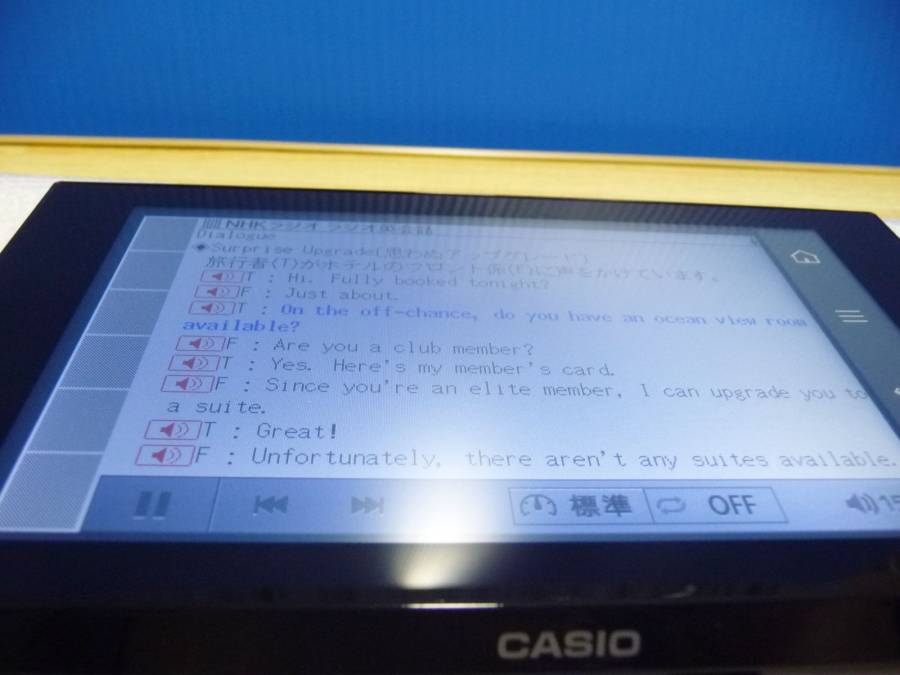 NHKラジオ ラジオ英会話
Dialogue
◈Surprise Upgrade(思わぬアップグレード)
旅行者(T)がホテルのフロント係(F)に声をかけています。
T : Hi. Fully booked tonight?
F : Just about.
T : On the off-chance, do you have an ocean view room
available?
F : Are you a club member?
T : Yes. Here's my member's card.
F : Since you're an elite member, I can upgrade you to
a suite.
T : Great!
F : Unfortunately, there aren't any suites available.
標準 OFF 15
CASIO